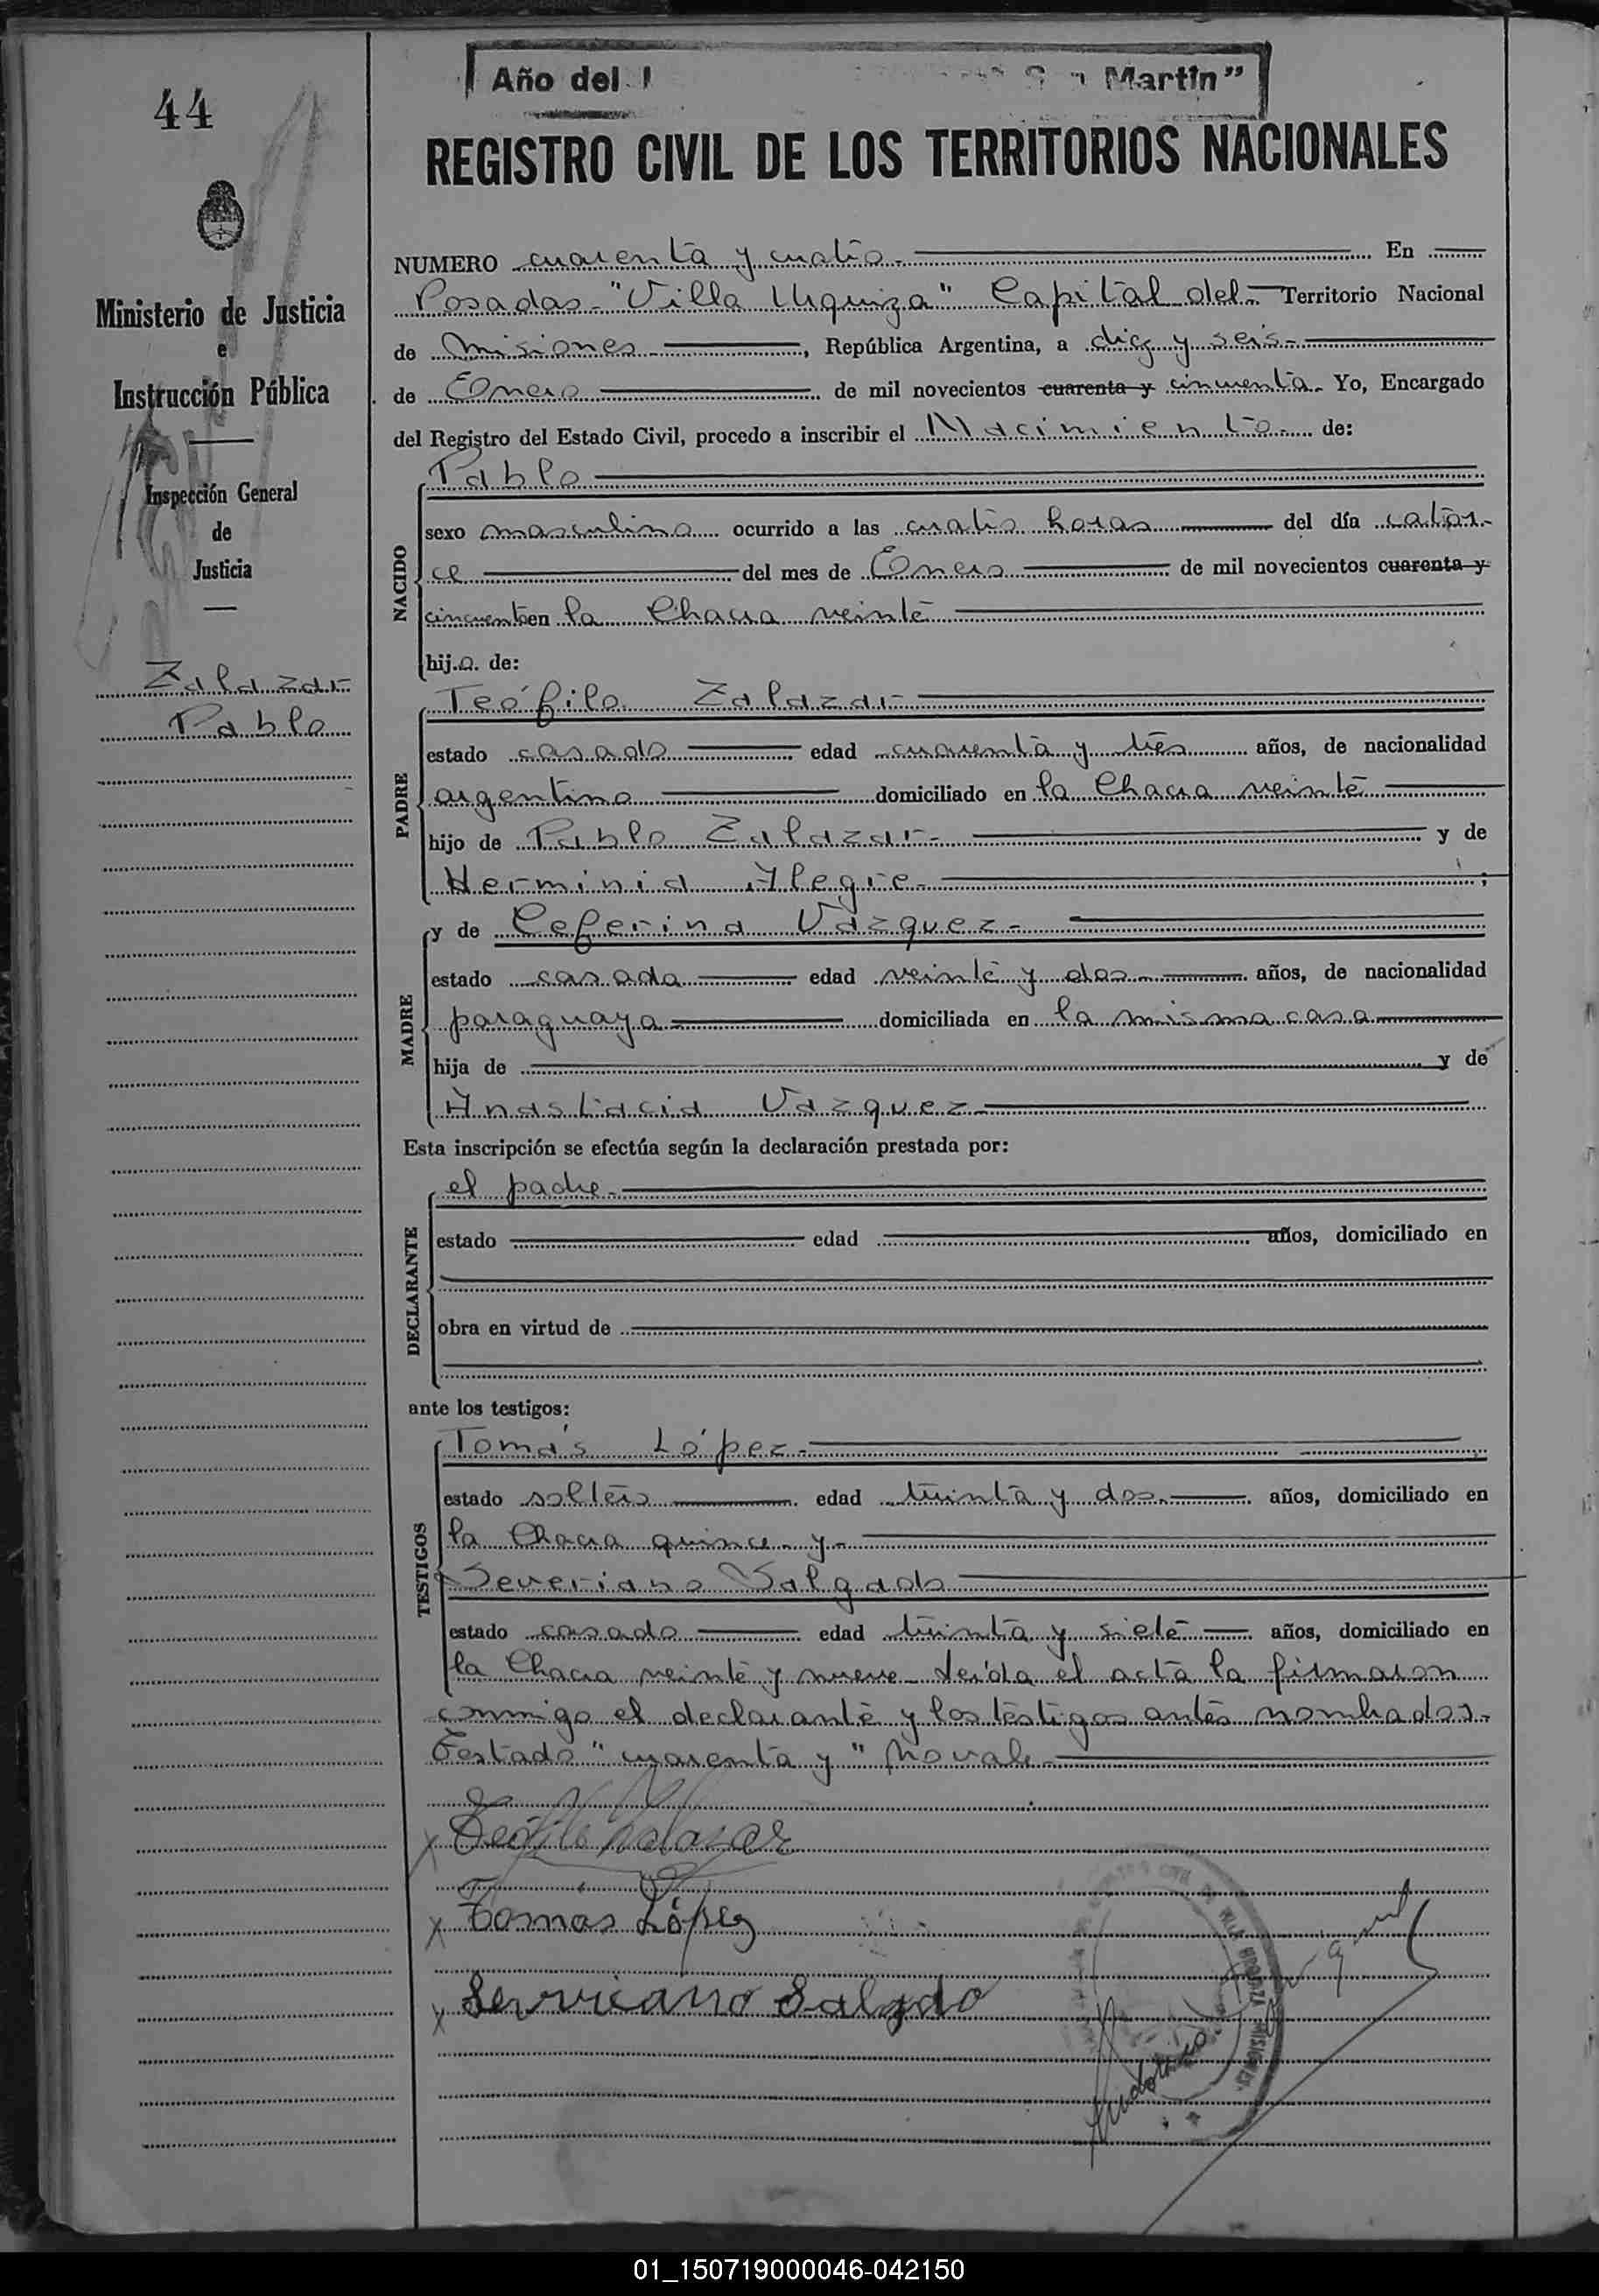 44
Año del
Martín”
REGISTRO CIVIL DE LOS TERRITORIOS NACIONALES
Ministerio de Justicia
e
Instrucción Pública
Inspección General
de
Justicia
Zalazar
Pablo
NUMERO cuarenta y cuatro.- En
Posadas-"Villa Urquiza" Capital del- Territorio Nacional
de Misiones-, República Argentina, a diez y seis-
de Enero de mil novecientos cuarenta y cincuenta. Yo, Encargado
del Registro del Estado Civil, procedo a inscribir el Nacimiento- de:
NACIDO
Pablo
sexo masculino ocurrido a las cuatro horas del día cator-
ce del mes de Enero de mil novecientos cuarenta y
cincuenta en la Chacra veinte
hij.o. de:
PADRE
Teófilo Zalazar
estado casado edad cuarenta y tres años, de nacionalidad
argentino domiciliado en la Chacra veinte
hijo de Pablo Zalazar- y de
Herminia Alegre- ;
MADRE
y de Ceferina Vazquez-
estado casada edad veinte y dos- años, de nacionalidad
paraguaya domiciliada en la misma casa
hija de y de
Anastacia Vazquez-
Esta inscripción se efectúa según la declaración prestada por:
DECLARANTE
el padre-
estado edad años, domiciliado en
obra en virtud de
ante los testigos:
TESTIGOS
Tomás López-
estado soltero edad treinta y dos- años, domiciliado en
la Chacra quince y-
Severiano Salgado
estado casado edad treinta y siete años, domiciliado en
la Chacra veinte y nueve- Leída el acta la firmaron
conmigo el declarante y los testigos antes nombrados-
Testado "cuarenta y" No vale-
x Teófilo Zalazar
x Tomas López
x Servicano Salgado
MISIONES
01_150719000046-042150